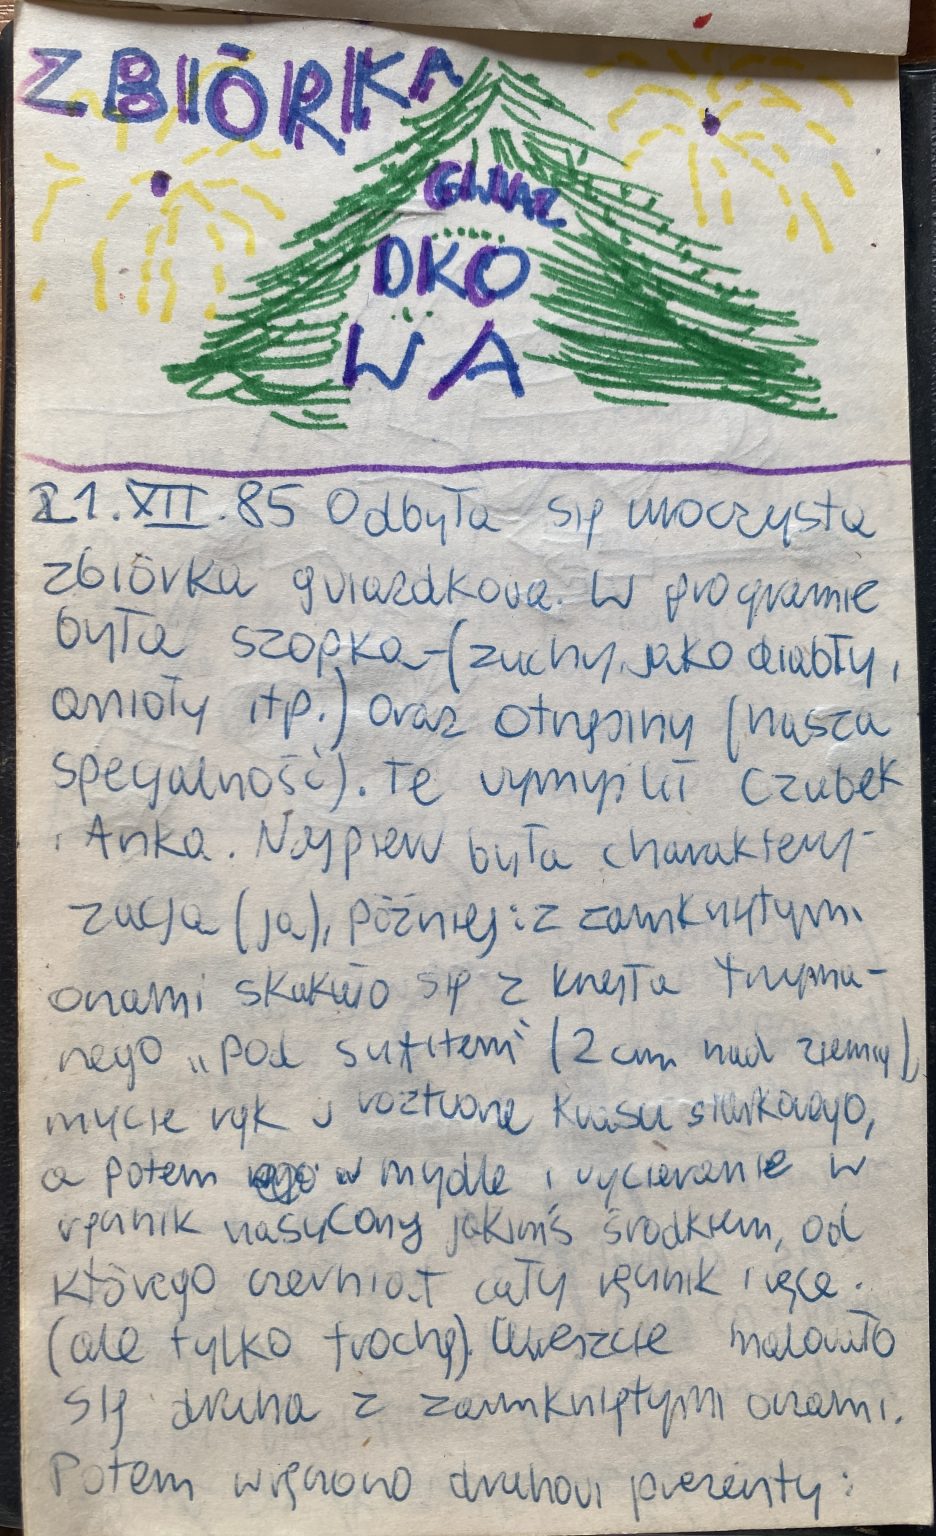 ZBIÓRKA
GWIAZ
DKO
WA
21.XII.85 Odbyła się uroczysta
zbiórka gwiazdkowa. W programie
była szopka-(zuchy jako diabły,
anioły itp.) oraz otrzęsiny (nasza
specjalność). Te wymyślili Czubek
i Anka. Najpierw była charaktery-
zacja (ja), później: z zamkniętymi
oczami skakało się z krzesła trzyma-
nego „pod sufitem" (2 cm nad ziemią),
mycie rąk w roztworze kwasu siarkowego,
a potem w mydle i wycieranie w
ręcznik nasycony jakimś środkiem, od
którego czerniał cały ręcznik i ręce.
(ale tylko trochę). Wreszcie malowało
się druha z zamkniętymi oczami.
Potem wręczono druhowi prezenty: